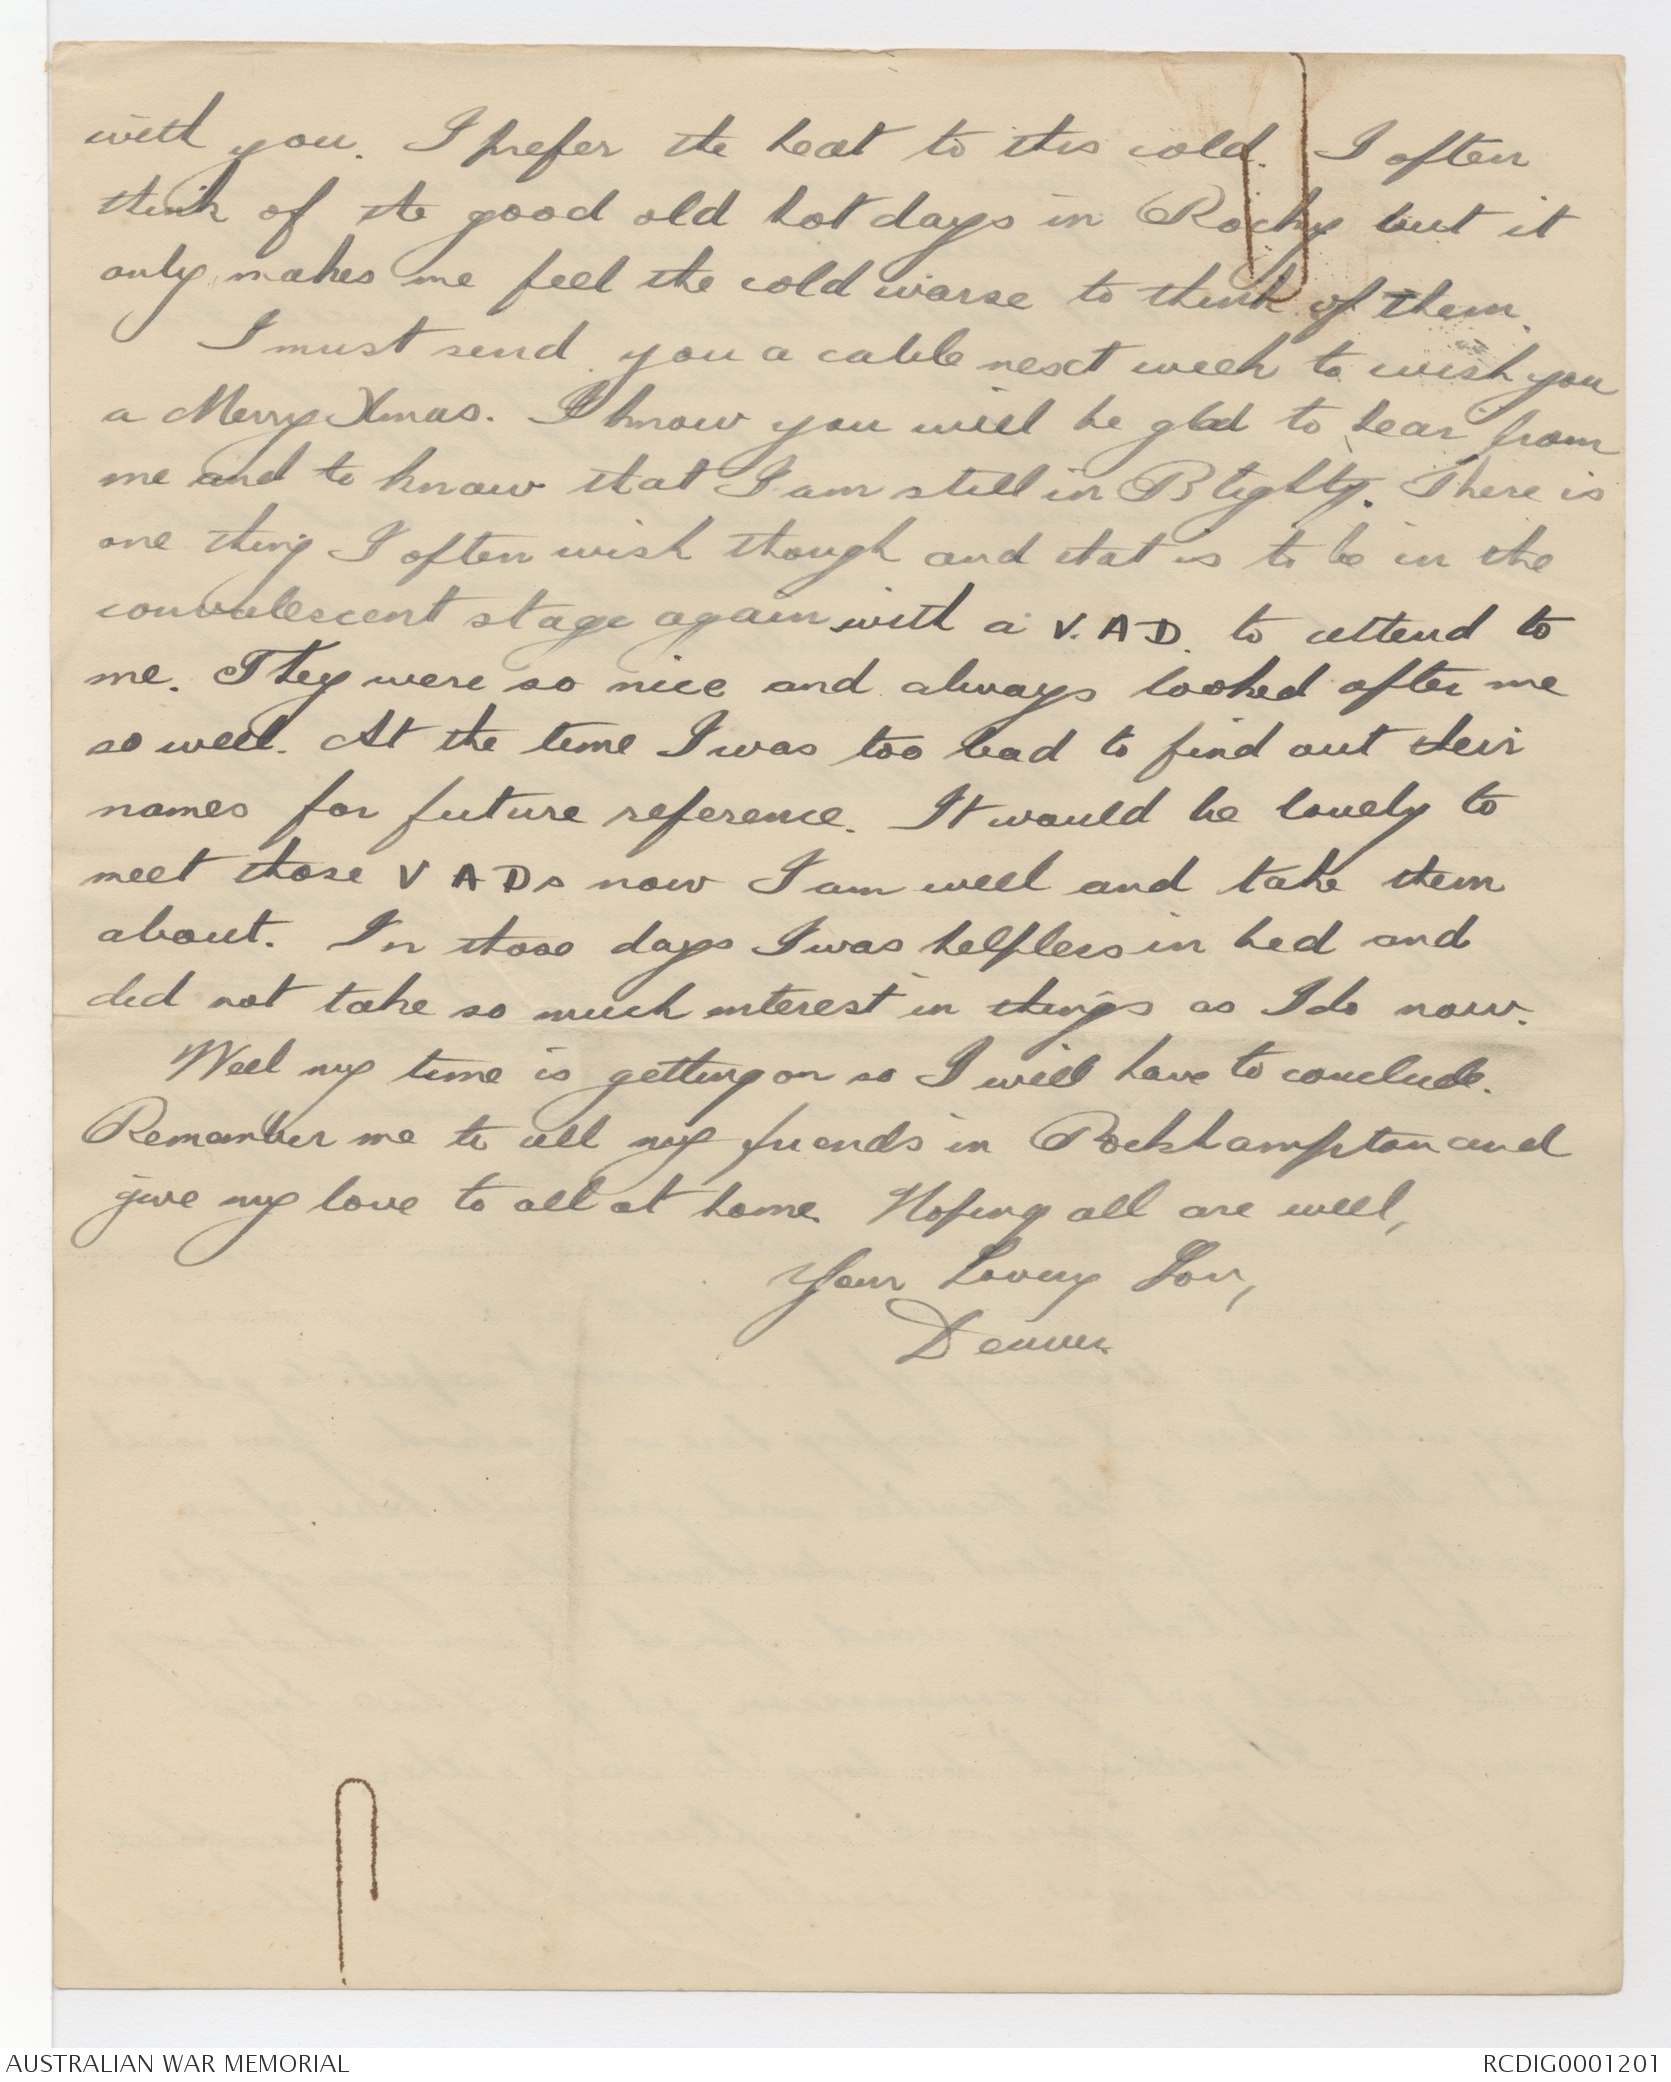 with you. I prefer the heat to this cold. I often
think of the good old hot days in Rocky but it
only makes me feel the cold worse to think of them.
I must send you a cable next week to wish you
a Merry Xmas. I know you will be glad to hear from
me and to know that I am still in Blighty. There is
one thing I often wish though and that is to be in the
convalescent stage again with a V.A.D. to attend to
me. They were so nice and always looked after me
so well. At the time I was too bad to find out their
names for future reference. It would be lovely to
meet those V A Ds now I am well and take them
about. In those days I was helpless in bed and
did not take so much interest in things as I do now.
Well my time is getting on so I will have to conclude.
Remember me to all my friends in Rockhampton and
give my love to all at home. Hoping all are well,
Your Loving Son,
Denver.
AUSTRALIAN WAR MEMORIAL
RCDIG0001201